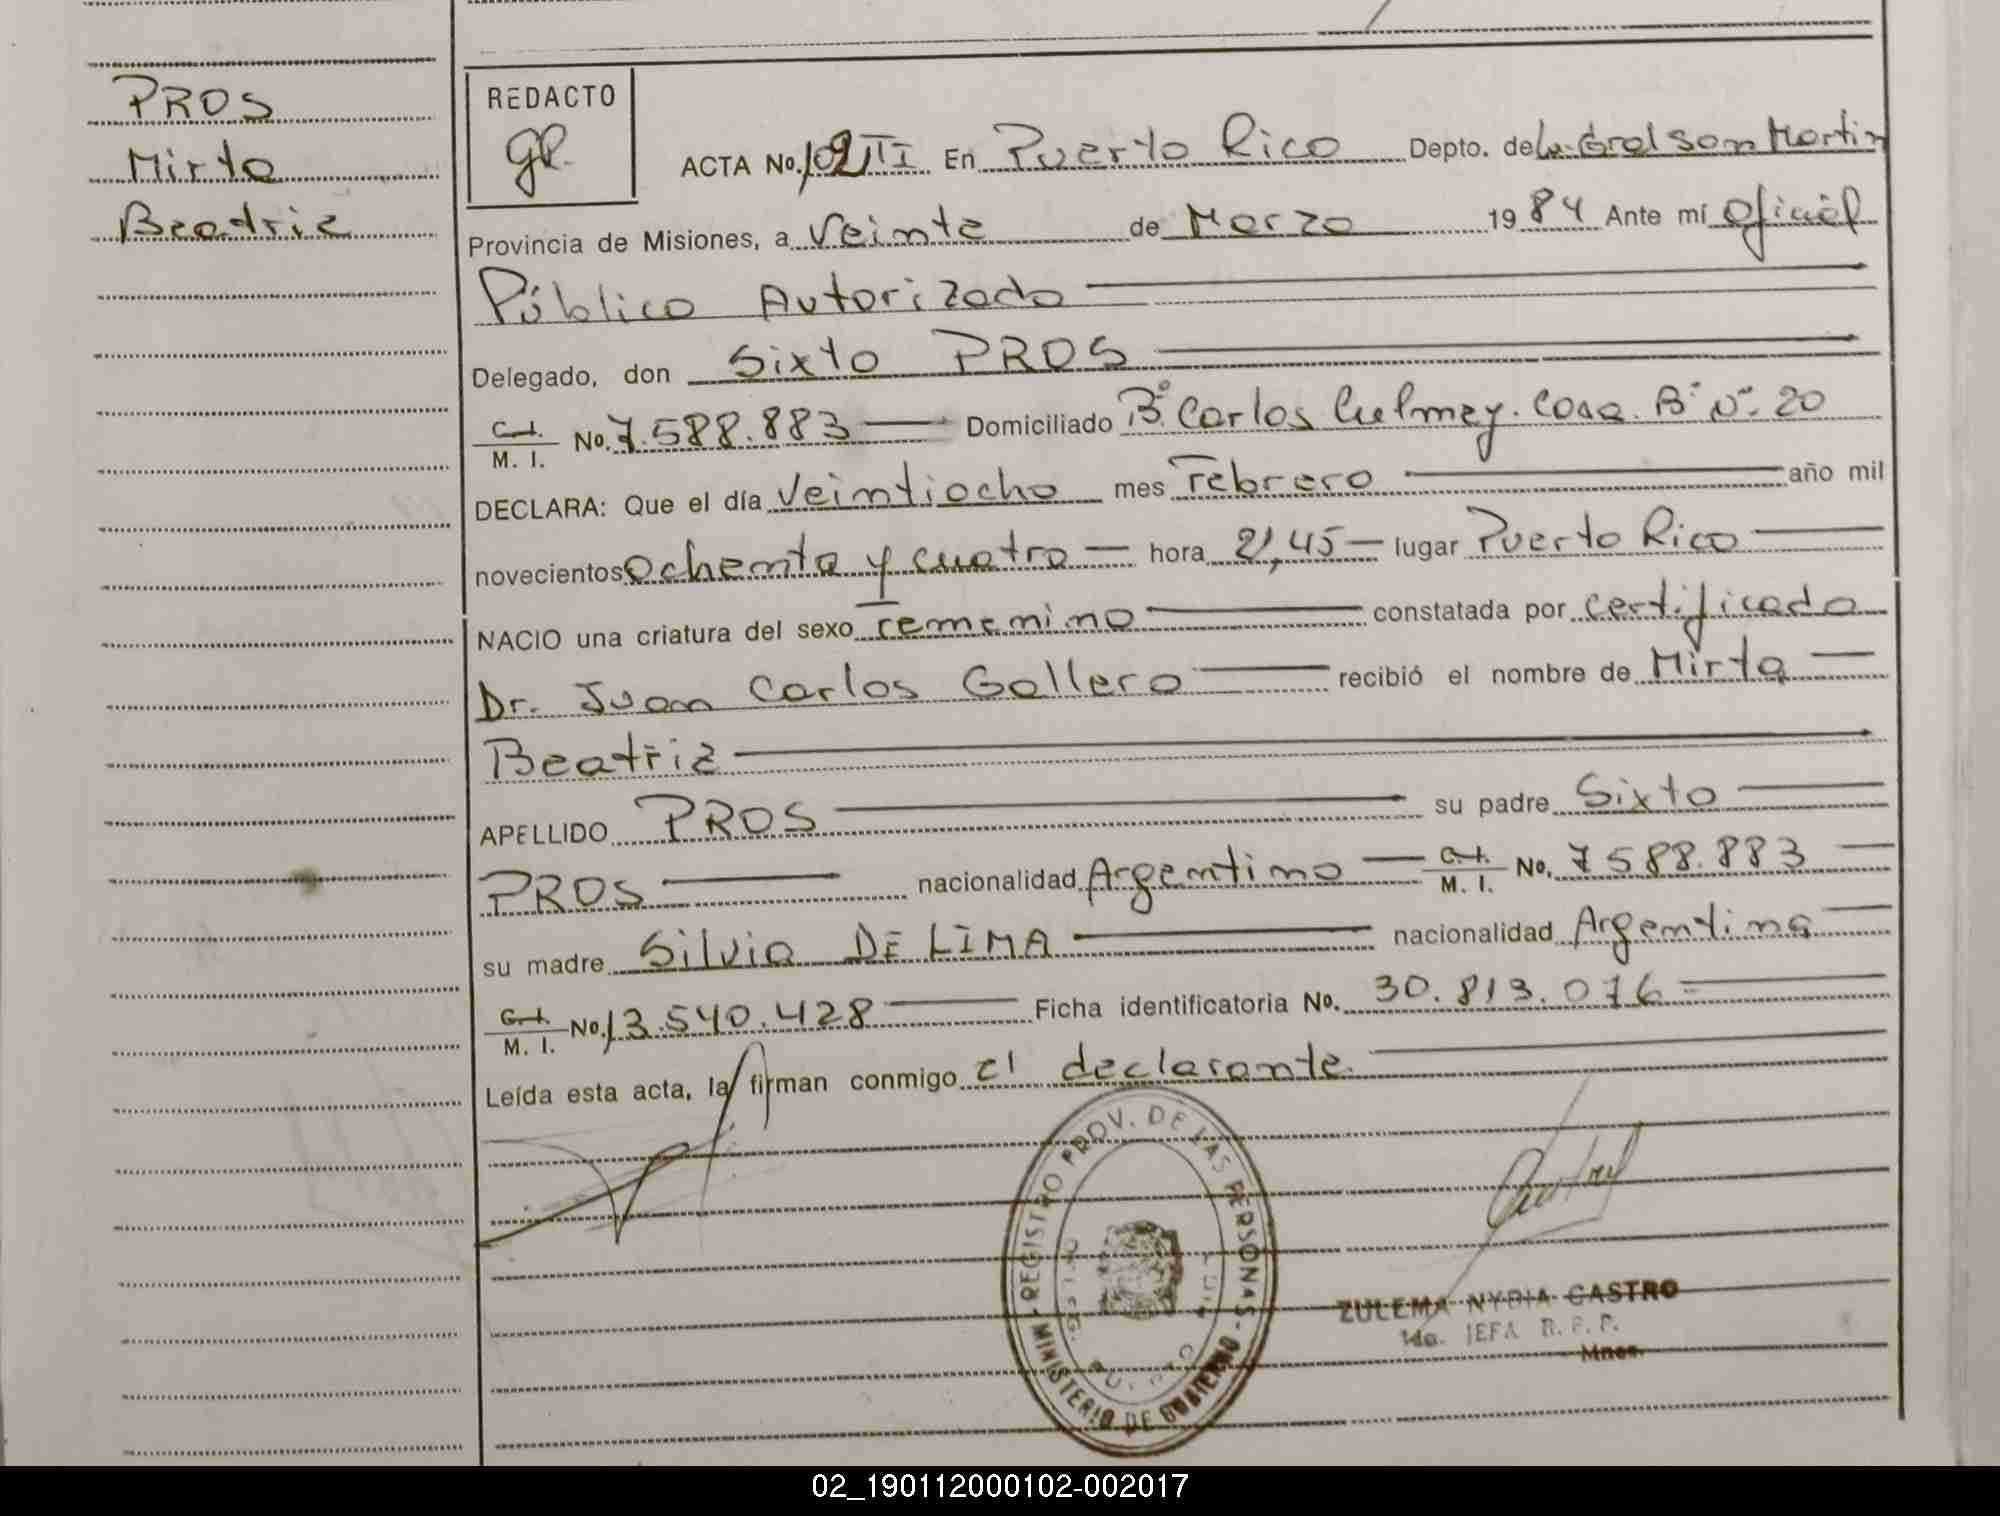 PROS
Mirta
Beatriz
REDACTO
gR.
ACTA No. 102 TI En Puerto Rico Depto. de Lib. Gral San Martin
Provincia de Misiones, a Veinte de Marzo 1984 Ante mí Oficial
Público Autorizado
Delegado, don Sixto PROS
C. I. / M. I. No. 7.588.883 Domiciliado B° Carlos Culmey. Casa. B. N° 20
DECLARA: Que el día Veintiocho mes Febrero año mil
novecientos ochenta y cuatro hora 21,45 lugar Puerto Rico
NACIO una criatura del sexo Femenino constatada por Certificado
Dr. Juan Carlos Gallero recibió el nombre de Mirta
Beatriz
APELLIDO PROS su padre Sixto
PROS nacionalidad Argentino C. I. / M. I. No. 7588.883
su madre Silvia DE LIMA nacionalidad Argentina
C. I. / M. I. No. 13.540.428 Ficha identificatoria No. 30.813.076
Leída esta acta, la firman conmigo el declarante.
REGISTRO PROV. DE LAS PERSONAS
MINISTERIO DE GOBIERNO
ZULEMA NYDIA CASTRO
JEFA R. P. P.
Mnes.
02_190112000102-002017